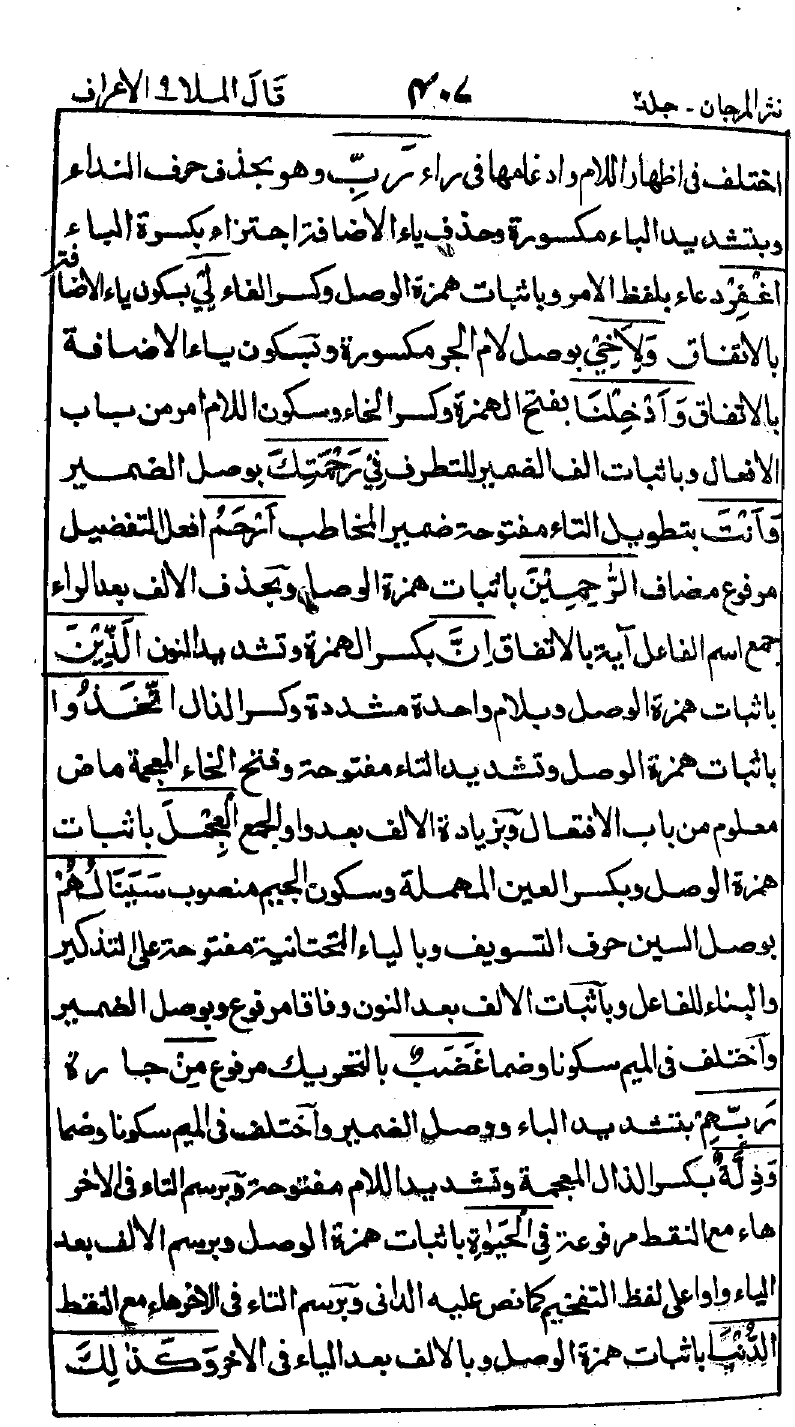 نثر المرجان - جلد٢
٤٠٧
قَالَ الملا ٩ الاعراف
اختلف فى اظهار اللام وادغامها فى راء رَبِّ وهو بحذف حرف النداء
وبتشديد الباء مكسورة وحذف ياء الاضافة اجتزاء بكسرة الباء
اغْفِرْ دعاء بلفظ الامر وباثبات همزة الوصل وكسر الفاء لِيْ بسكون ياء الاضافة
بالاتفاق وَلِاَخِيْ بوصل لام الجر مكسورة وبسكون ياء الاضافة
بالاتفاق وَاَدْخِلْنَا بفتح الهمزة وكسر الخاء وسكون اللام امر من باب
الافعال وباثبات الف الضمير للتطرف فِيْ رَحْمَتِكَ بوصل الضمير
وَاَنْتَ بتطويل التاء مفتوحة ضمير المخاطب اَرْحَمُ افعل التفضيل
مرفوع مضاف الرّٰحِمِيْنَ باثبات همزة الوصل وبحذف الالف بعد الراء
جمع اسم الفاعل آية بالاتفاق اِنَّ بكسر الهمزة وتشديد النون الَّذِيْنَ
باثبات همزة الوصل وبلام واحدة مشددة وكسر الذال اتَّخَذُوا
باثبات همزة الوصل وتشديد التاء مفتوحة وفتح الخاء المعجمة ماض
معلوم من باب الافتعال وبزيادة الالف بعد واو الجمع الْعِجْلَ باثبات
همزة الوصل وبكسر العين المهملة وسكون الجيم منصوب سَيَنَالُهُمْ
بوصل السين حرف التسويف وبالياء التحتانية مفتوحة على التذكير
والبناء للفاعل وباثبات الالف بعد النون وفاقا مرفوع وبوصل الضمير
واختلف فى الميم سكونا وضما غَضَبٌ بالتحريك مرفوع مِنْ جارة
رَبِّهِمْ بتشديد الباء ووصل الضمير واختلف فى الميم سكونا وضما
وَذِلَّةٌ بكسر الذال المعجمة وتشديد اللام مفتوحة وبرسم التاء فى الاخر
هاء مع النقط مرفوعة فِي الْحَيٰوةِ باثبات همزة الوصل وبرسم الالف بعد
الياء واوا على لفظ التفخيم كما نص عليه الدانى وبرسم التاء فى الاخر هاء مع النقط
الدُّنْيَا باثبات همزة الوصل وبالالف بعد الياء فى الاخر وَكَذٰلِكَ